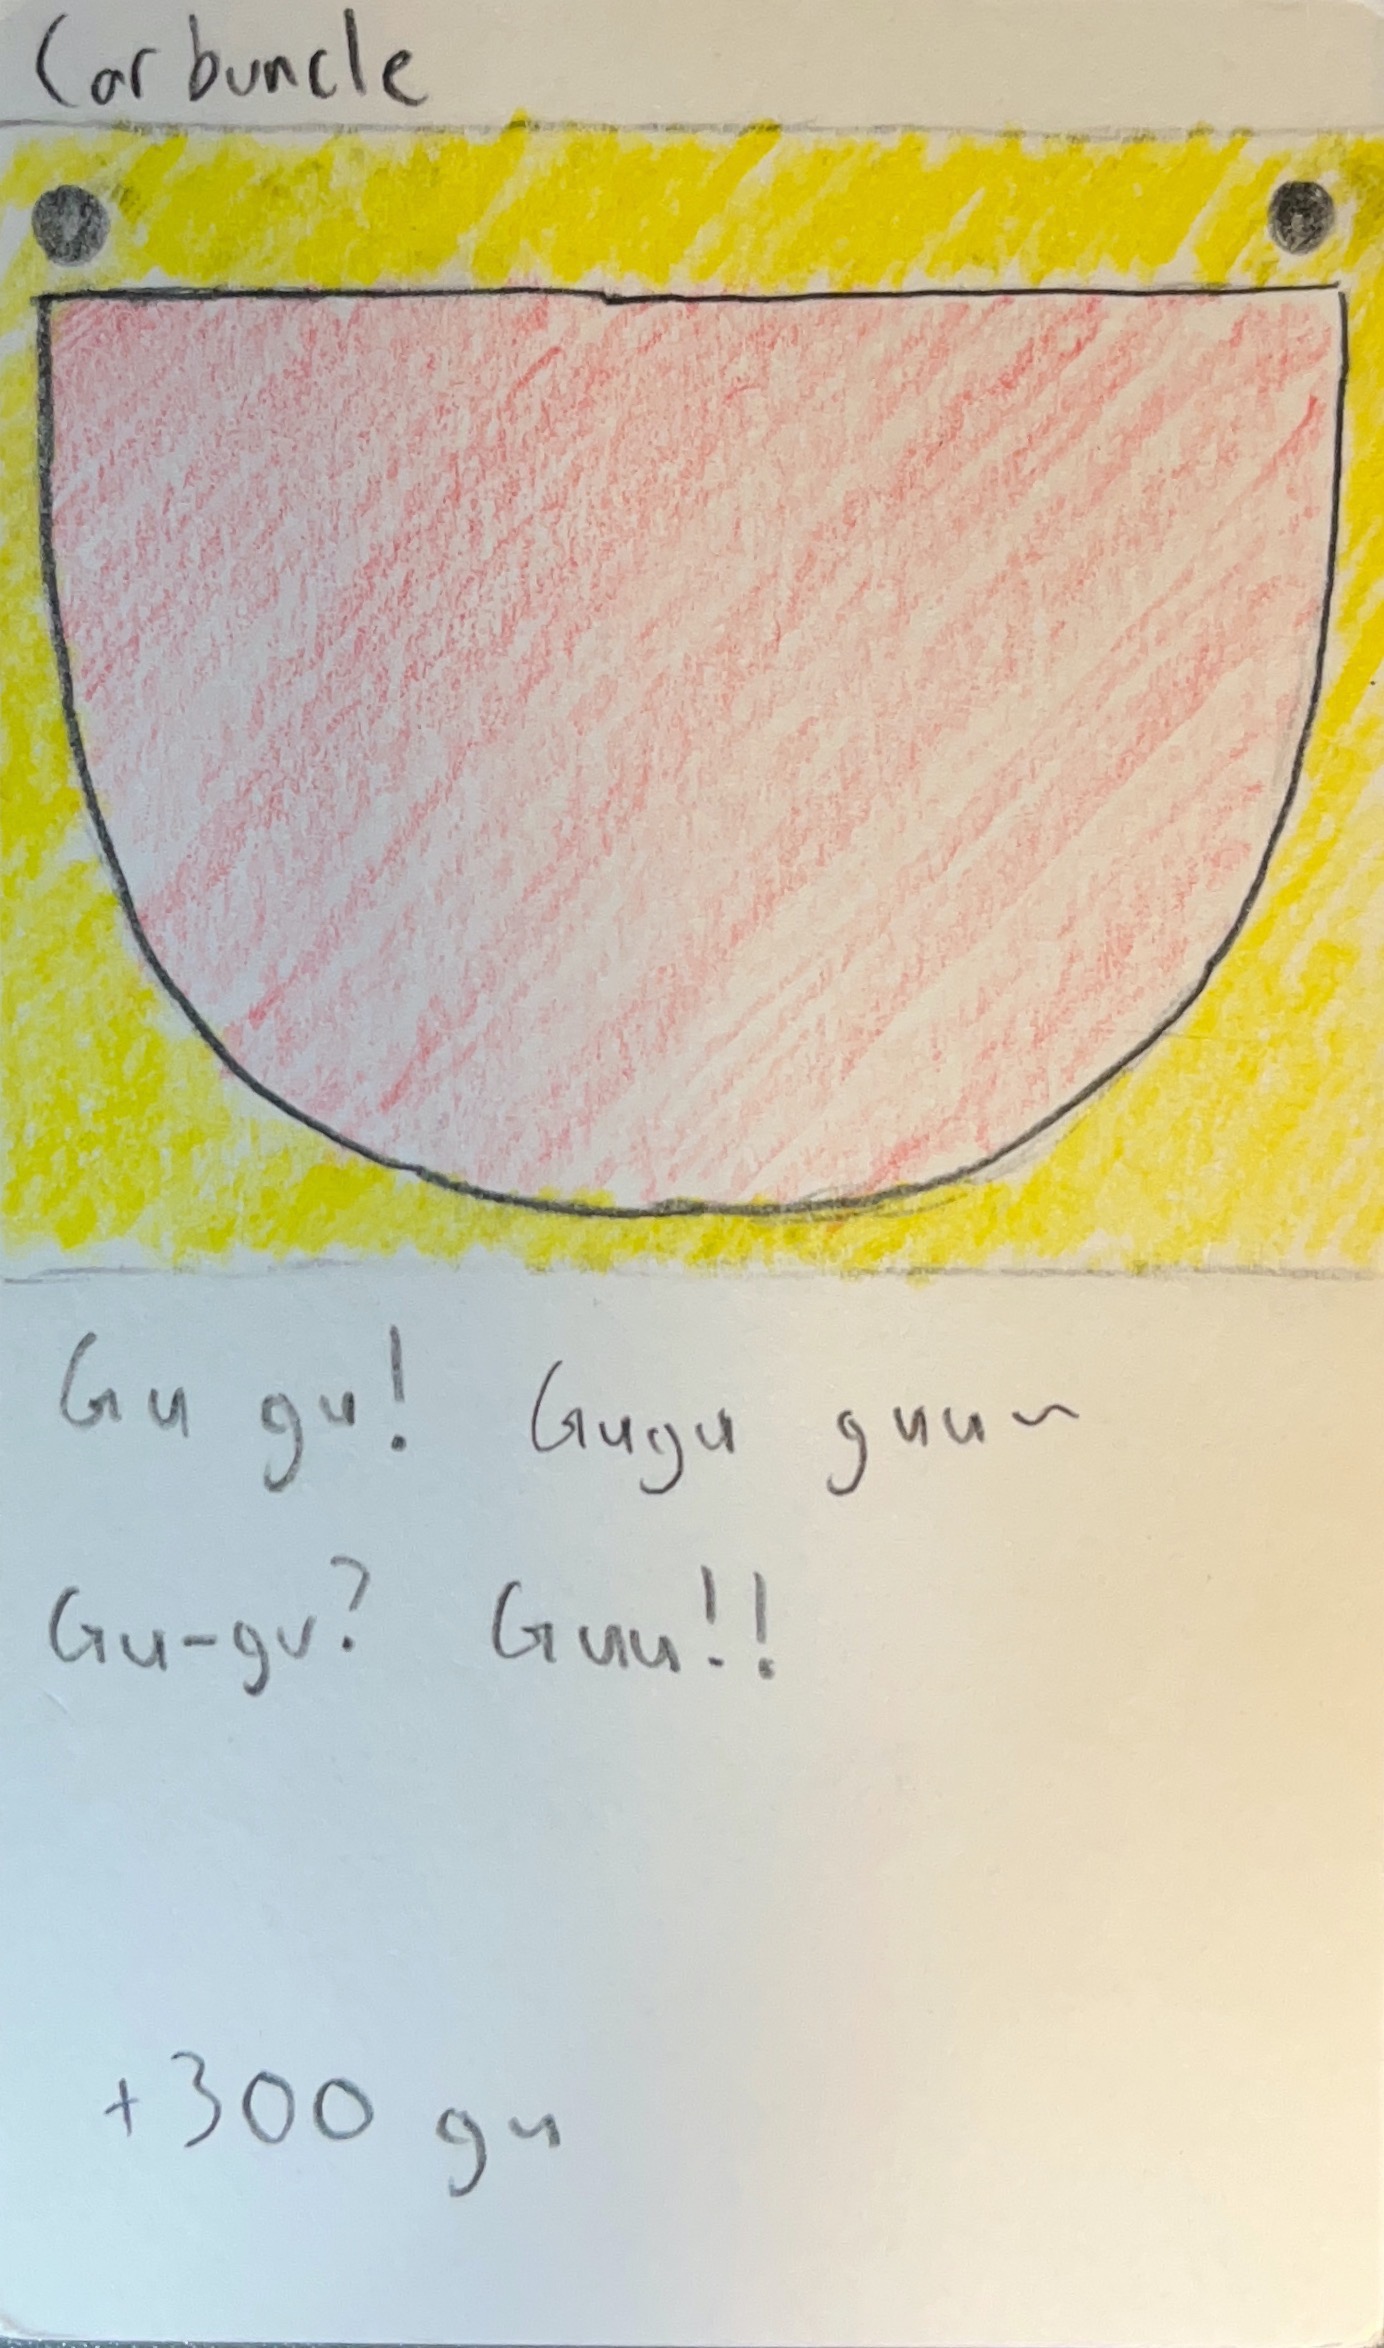 Carbuncle
Gu gu! Gugu guu~
Gu-gu? Guu!!
+300 gu